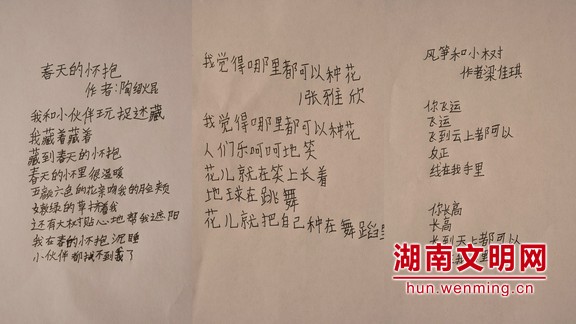 春天的怀抱
作者:陶烨昆
我和小伙伴玩捉迷藏
我藏着藏着
藏到春天的怀抱
春天的怀里很温暖
五颜六色的花亲吻我的脸颊
嫩绿的草拥着我
还有大树贴心地帮我遮阳
我在春的怀抱沉睡
小伙伴都找不到我了
我觉得哪里都可以种花
张雅欣
我觉得哪里都可以种花
人们乐呵呵地笑
花儿就在笑上长着
地球在跳舞
花儿就把自己种在舞蹈里
风筝和小树
作者梁佳琪
你飞运
飞运
飞到云上都可以
反正
线在我手里
你长高
长高
长到天上都可以
里
湖南文明网
hun.wenming.cn